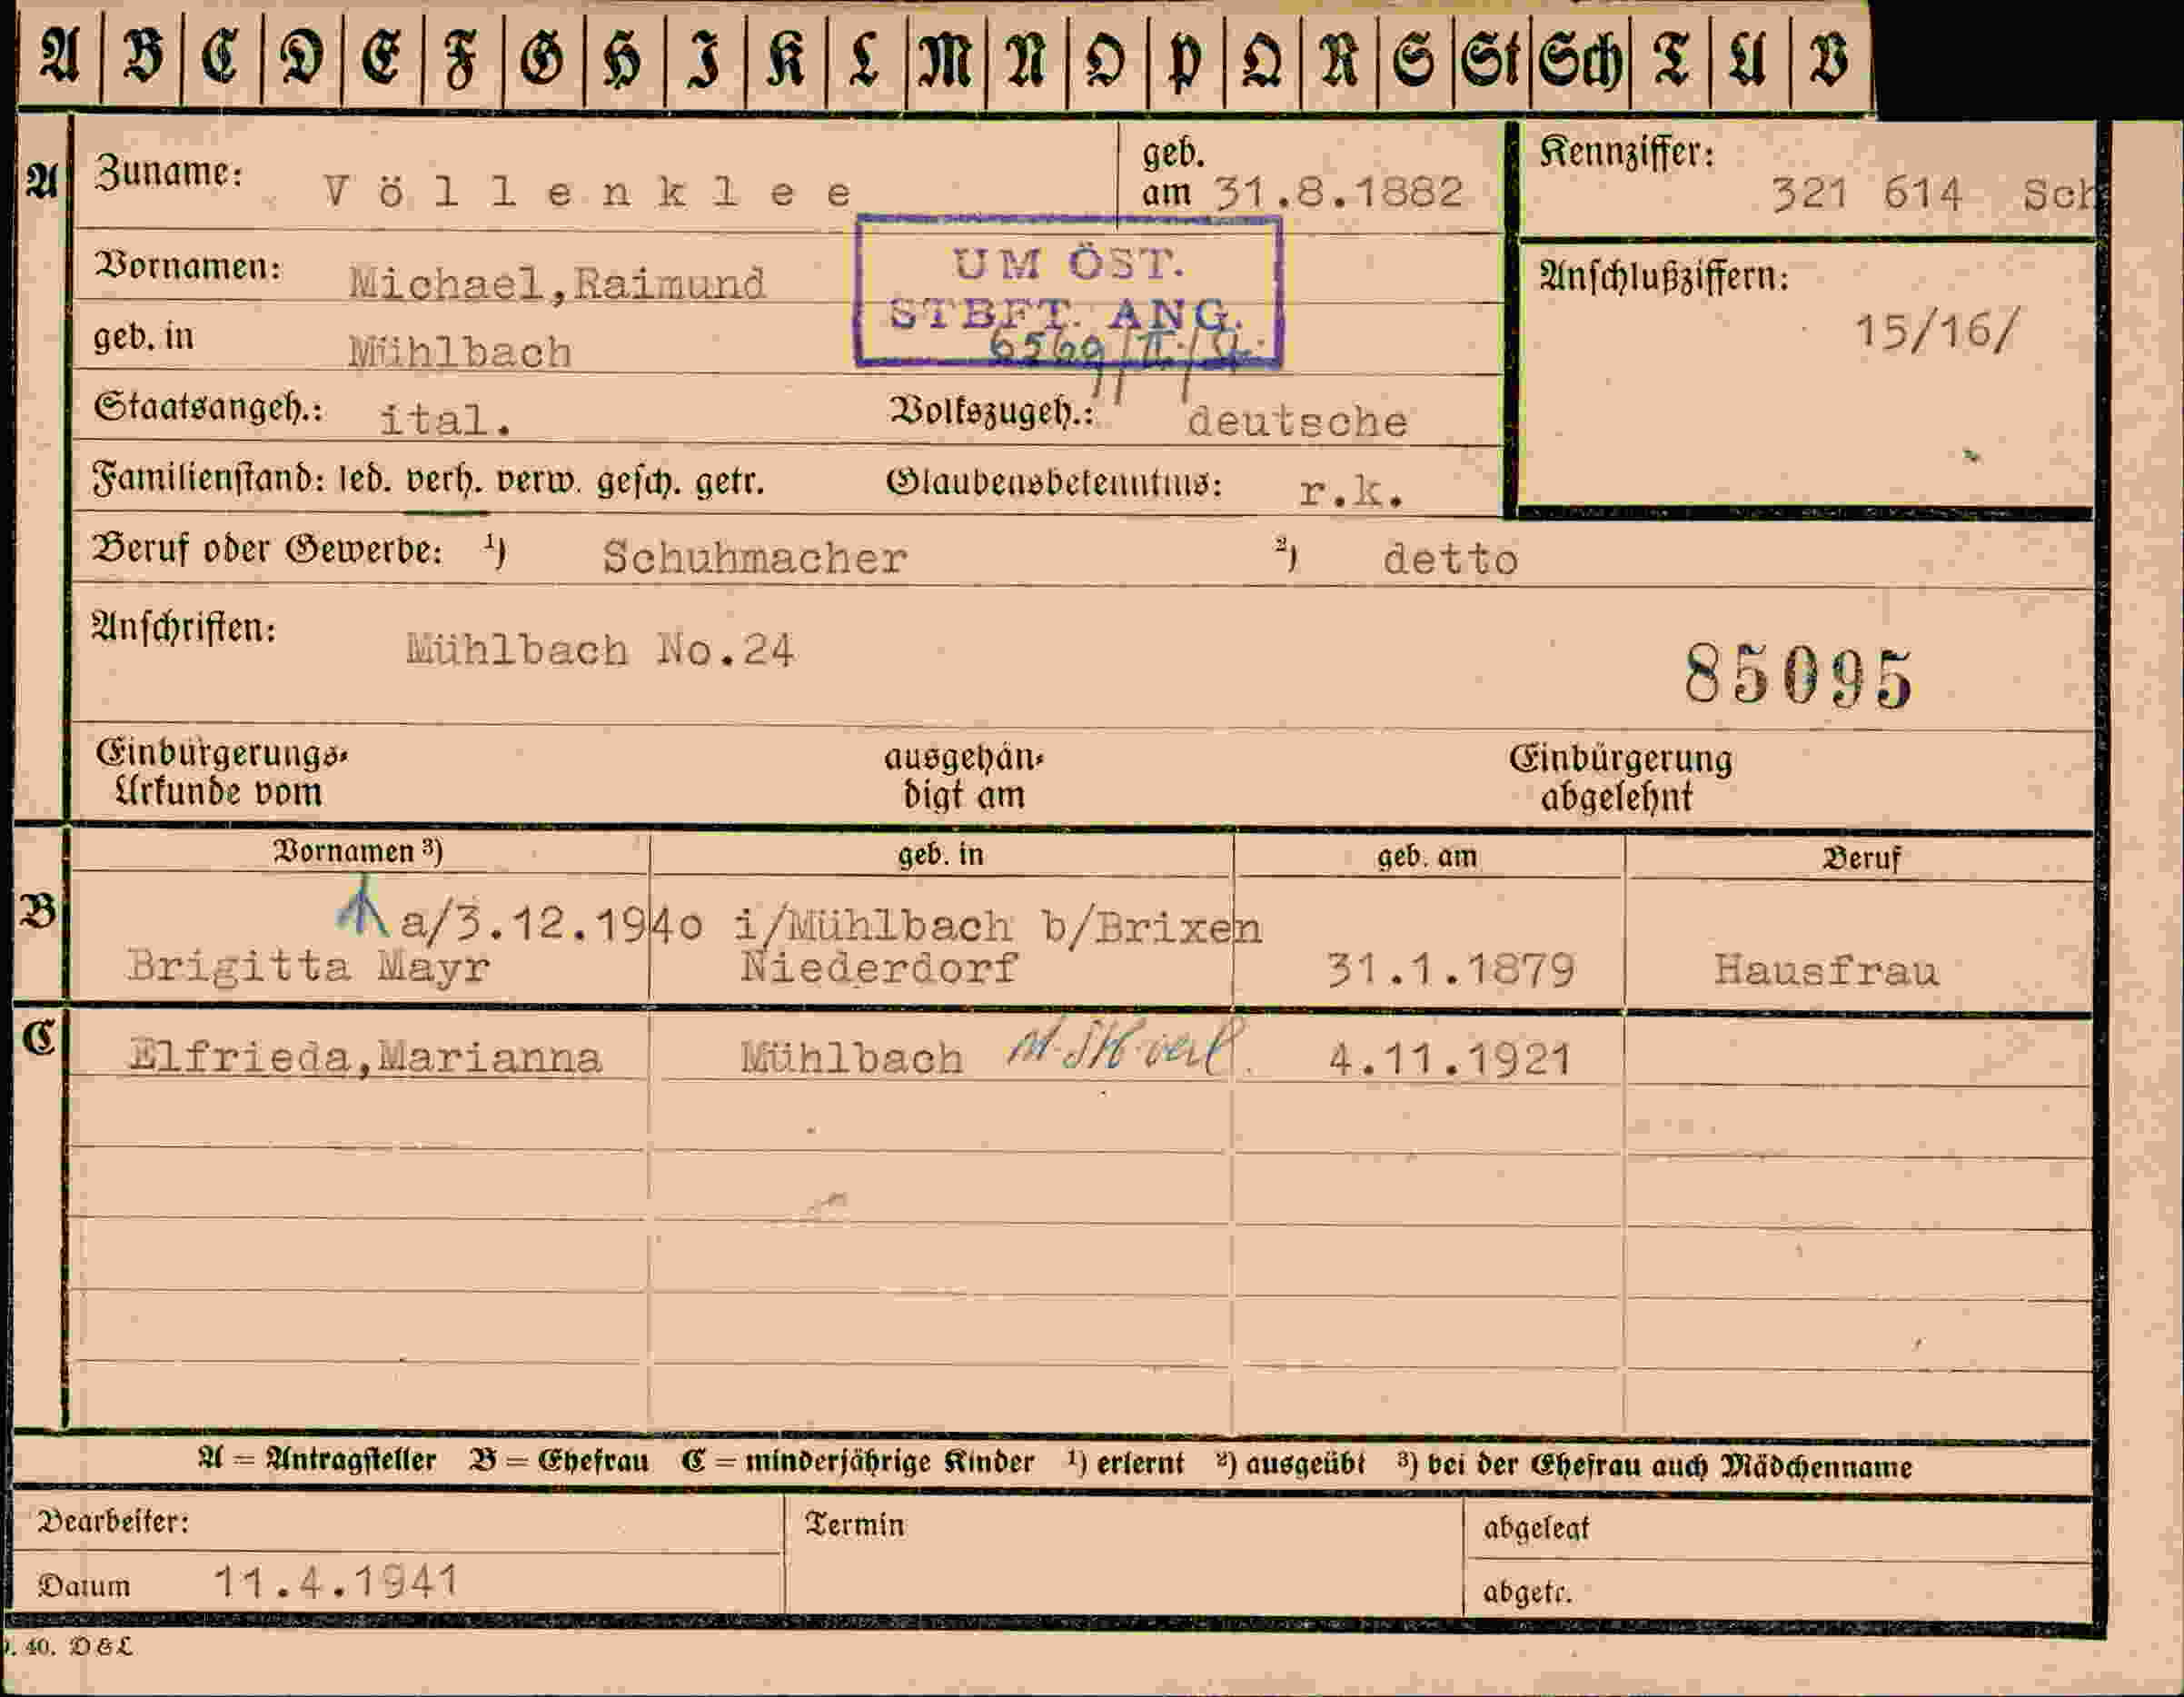 A B C D E F G H I K L M N O P Q R S St Sch T U V
A Zuname: Völlenklee geb. am 31.8.1882
Kennziffer: 321 614 Sch
Vornamen: Michael,Raimund
UM ÖST.
STBFT. ANG.
Anschlußziffern:
15/16/
geb. in Mühlbach
Staatsangeh.: ital. Volkszugeh.: deutsche
Familienstand: led. verh. verw. gesch. getr. Glaubensbekenntnis: r.k.
Beruf oder Gewerbe: ¹) Schuhmacher ²) detto
Anschriften: Mühlbach No.24
85095
Einbürgerungs- ausgehän- Einbürgerung
Urkunde vom digt am abgelehnt
Vornamen ³) geb. in geb. am Beruf
B a/3.12.1940 i/Mühlbach b/Brixen
Brigitta Mayr Niederdorf 31.1.1879 Hausfrau
C Elfrieda,Marianna Mühlbach 4.11.1921
A = Antragsteller B = Ehefrau C = minderjährige Kinder ¹) erlernt ²) ausgeübt ³) bei der Ehefrau auch Mädchenname
Bearbeiter: Termin abgelegt
Datum 11.4.1941 abgetr.
40. D&L